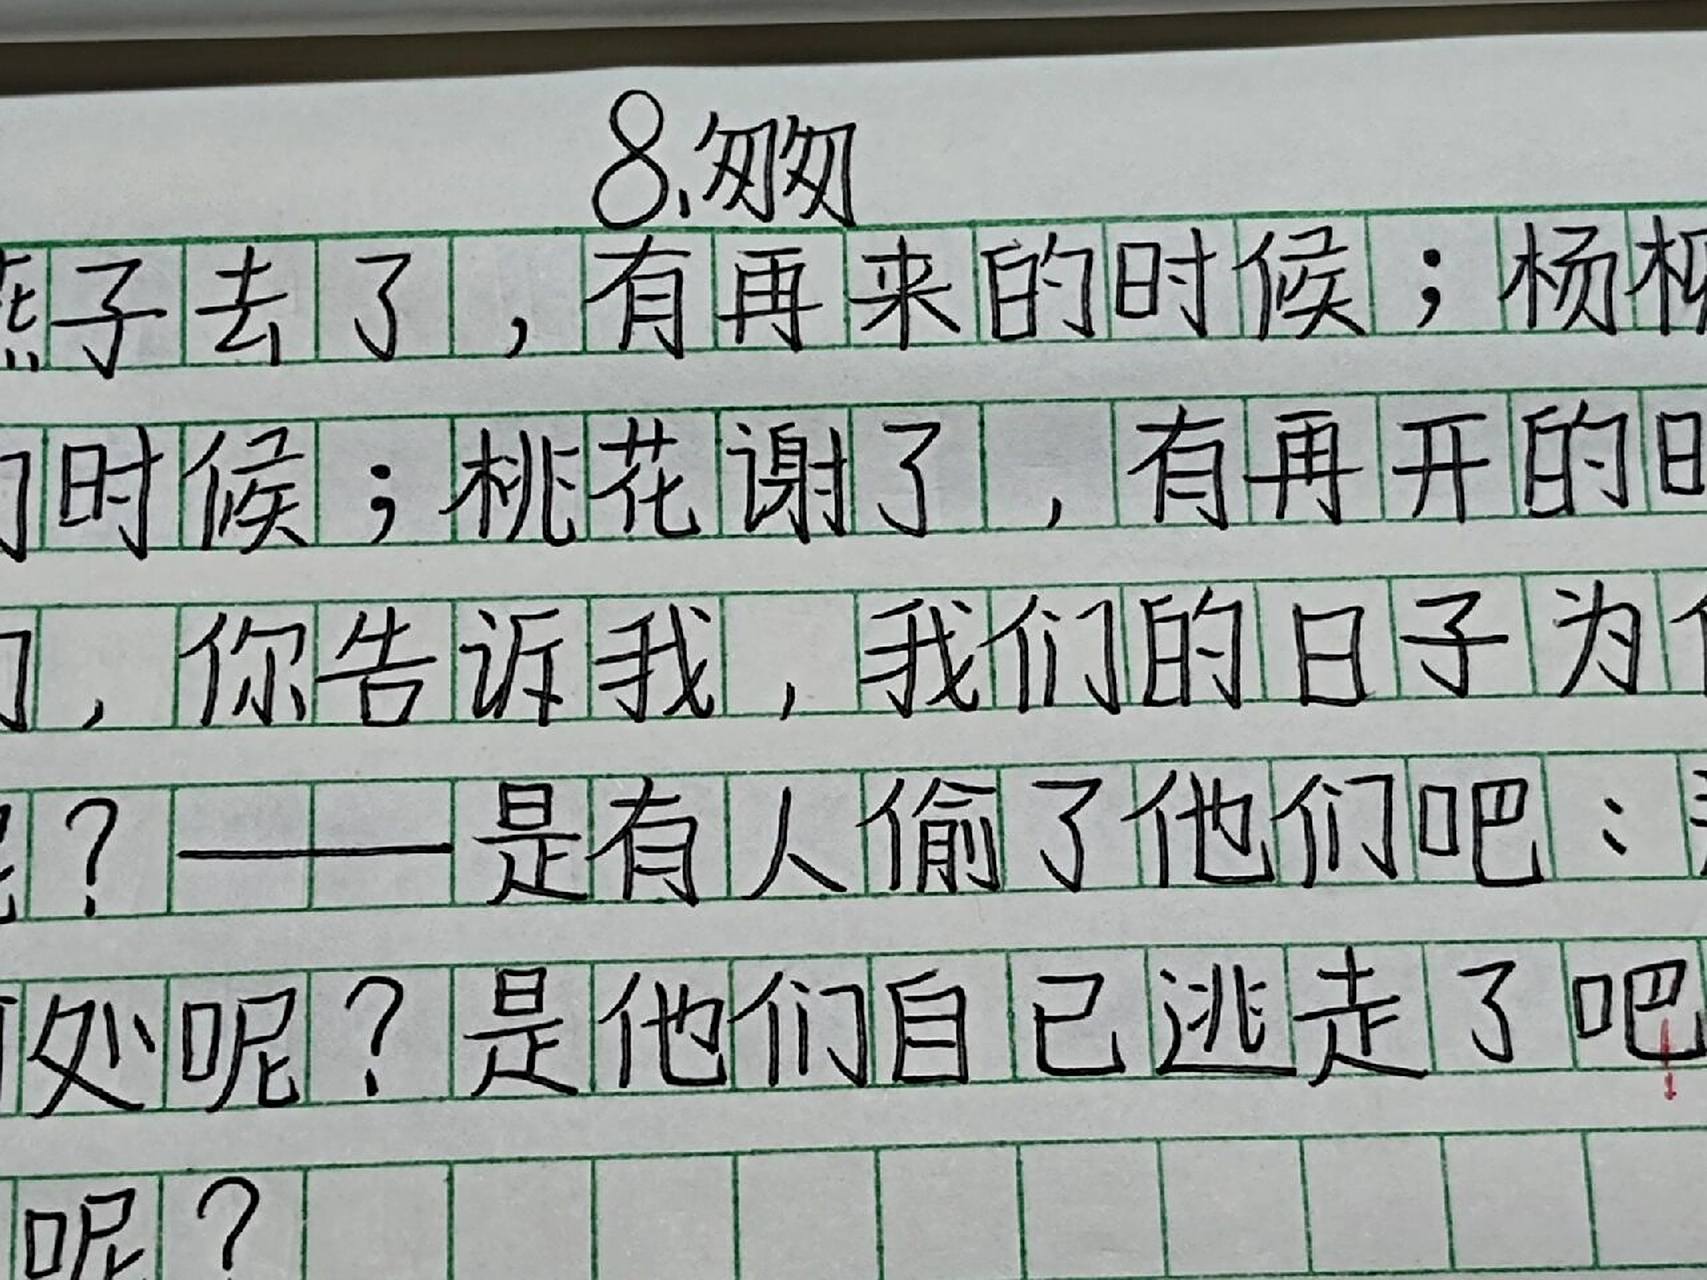 8.匆匆
燕子去了，有再来的时候；杨柳
的时候；桃花谢了，有再开的时
的，你告诉我，我们的日子为什
呢？——是有人偷了他们吧：
何处呢？是他们自己逃走了吧
呢？